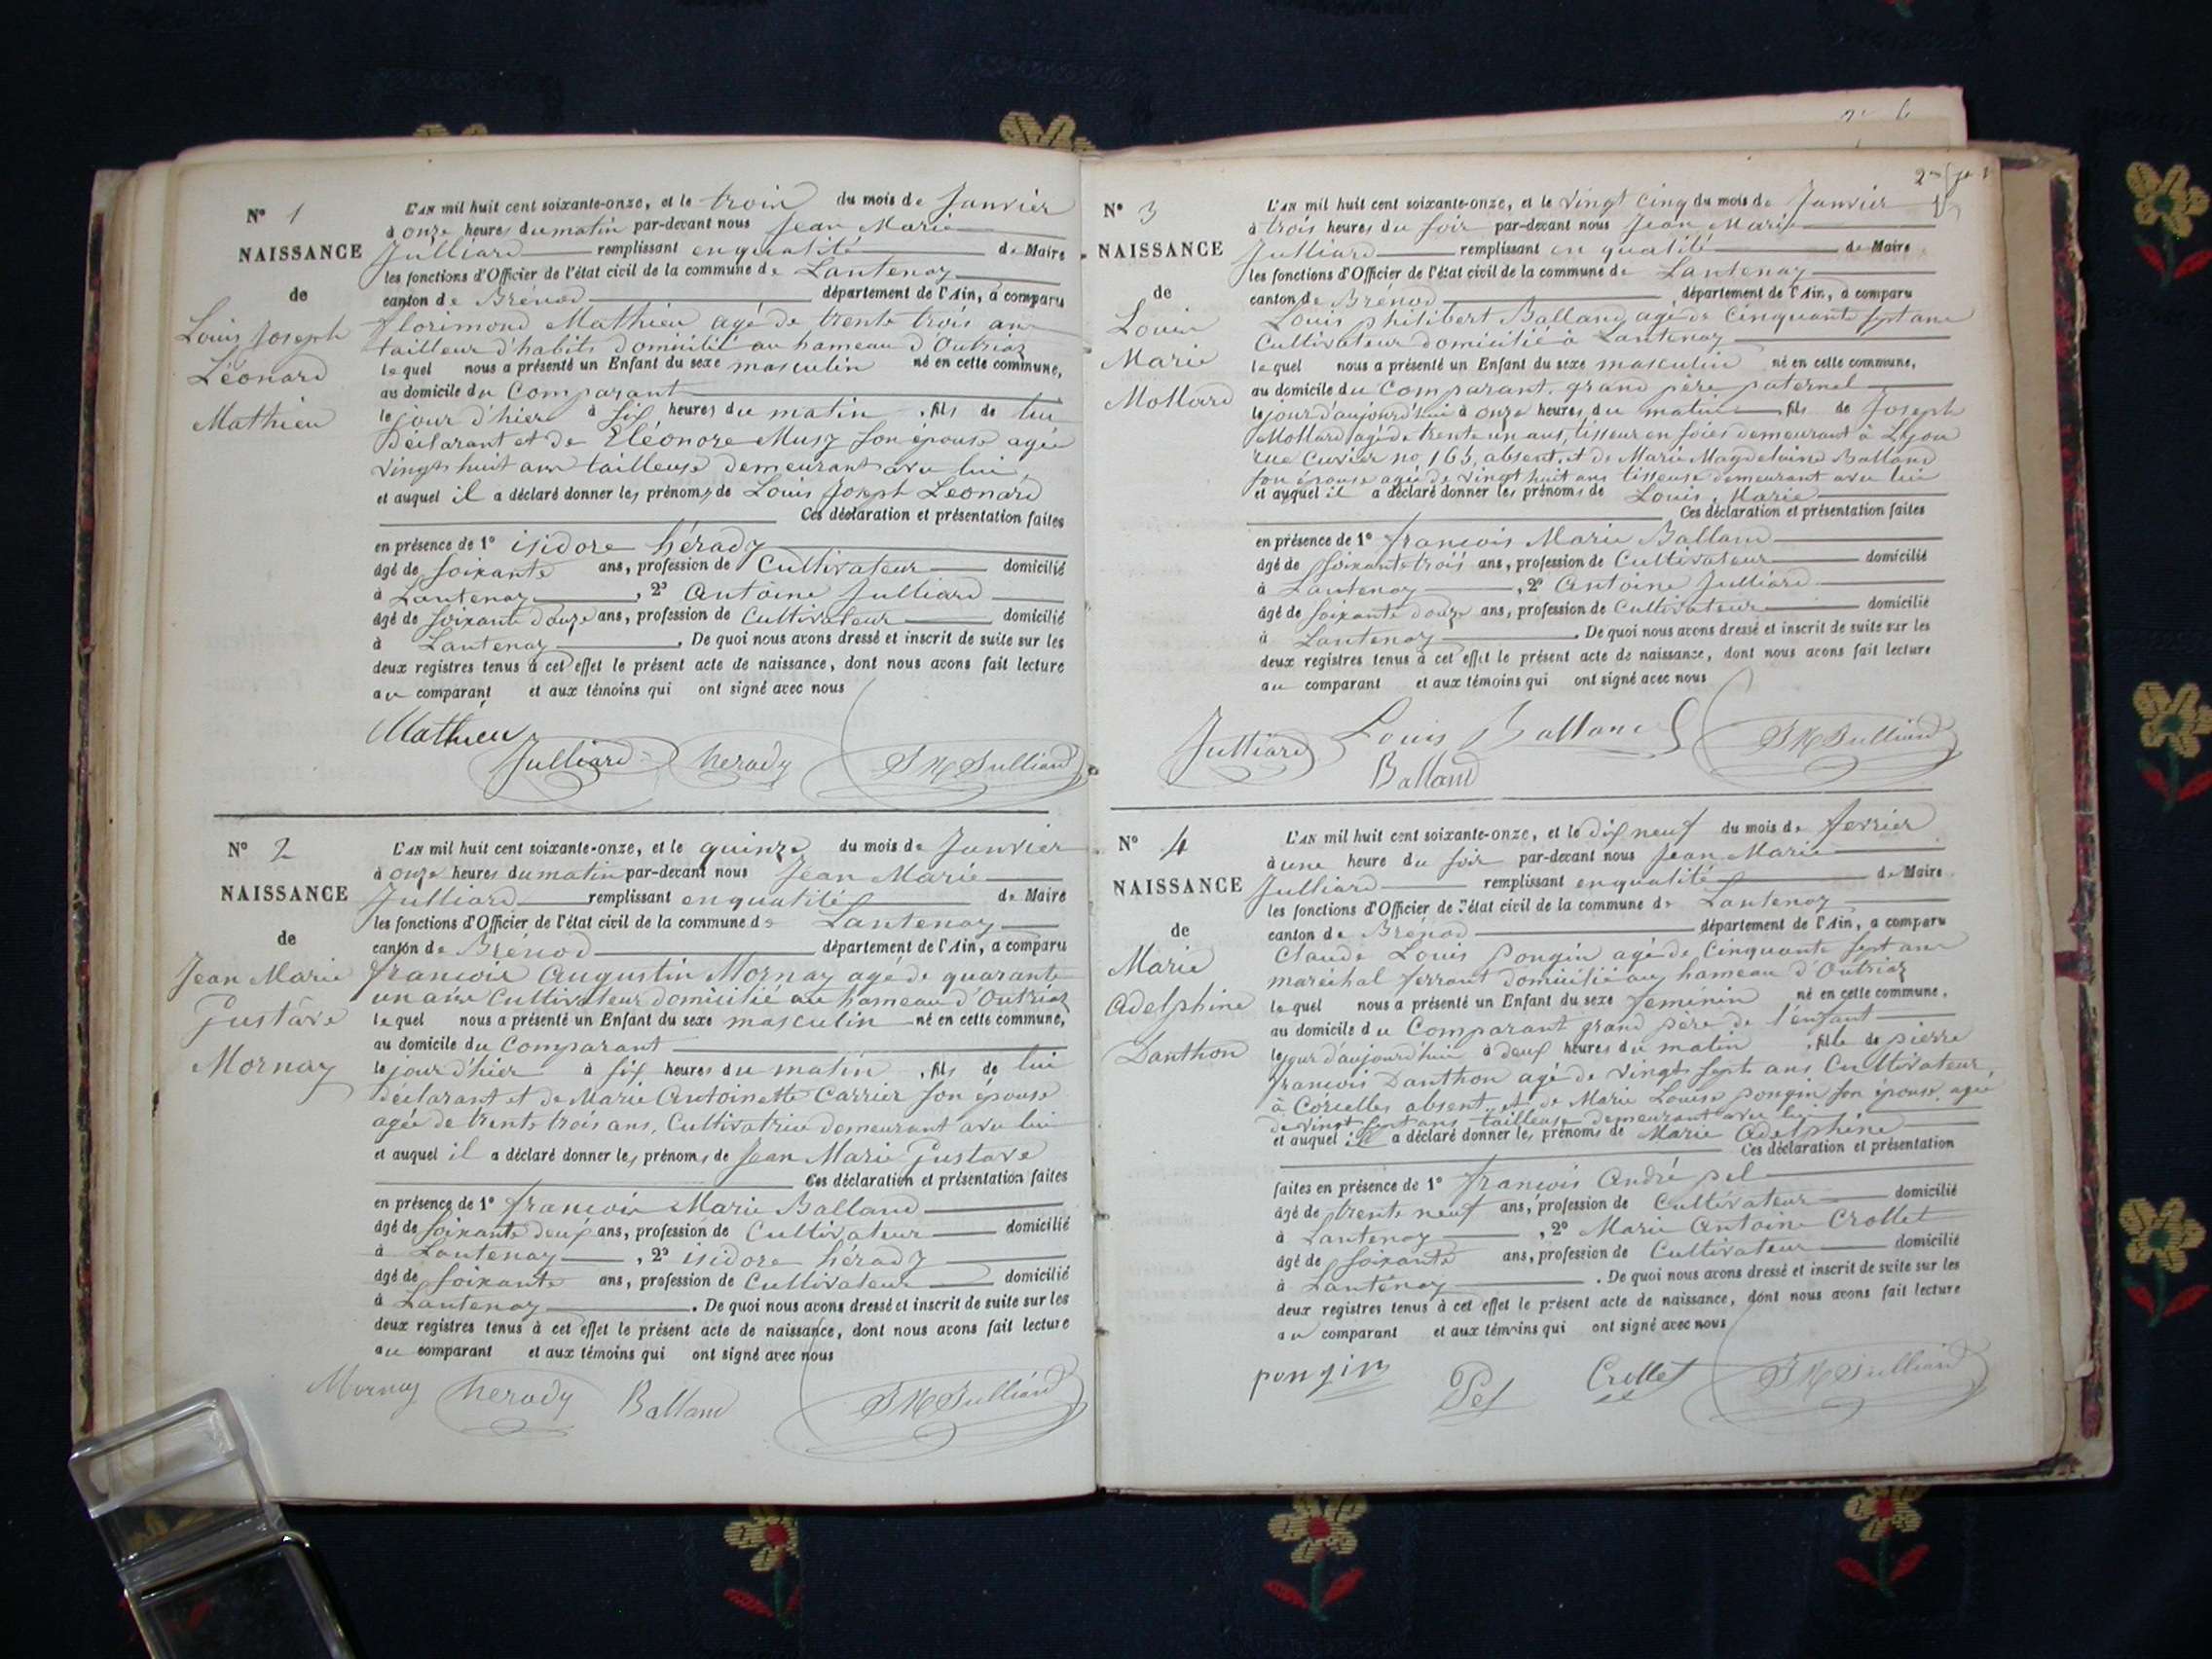 N° 1
NAISSANCE
de
Louis Joseph
Léonard
Mathieu
L'AN mil huit cent soixante-onze, et le trois du mois de Janvier
à onze heures du matin par-devant nous Jean Marie
Julliard remplissant en qualité de Maire
les fonctions d'Officier de l'état civil de la commune de Lantenay
canton de Brénod département de l'Ain, a comparu
florimond Mathieu agé de trente trois ans
tailleur d'habits domicilié au hameau d'Outriaz
lequel nous a présenté un Enfant du sexe masculin né en cette commune,
au domicile du Comparant
le jour d'hier à six heures du matin, fils de lui
déclarant et de Eléonore Musy son épouse agée
vingt huit ans tailleuse demeurant avec lui
et auquel il a déclaré donner les prénoms de Louis Joseph Leonard
Ces déclaration et présentation faites
en présence de 1° isidore hérady
âgé de soixante ans, profession de Cultivateur domicilié
à Lantenay, 2° Antoine Julliard
âgé de soixante douze ans, profession de Cultivateur domicilié
à Lantenay. De quoi nous avons dressé et inscrit de suite sur les
deux registres tenus à cet effet le présent acte de naissance, dont nous avons fait lecture
au comparant et aux témoins qui ont signé avec nous
Mathieu
Julliard herady JM Julliard
N° 2
NAISSANCE
de
Jean Marie
Gustave
Mornay
L'AN mil huit cent soixante-onze, et le quinze du mois de Janvier
à onze heures du matin par-devant nous Jean Marie
Julliard remplissant en qualité de Maire
les fonctions d'Officier de l'état civil de la commune de Lantenay
canton de Brénod département de l'Ain, a comparu
francois Augustin Mornay agé de quarante
un ans Cultivateur domicilié au hameau d'Outriaz
lequel nous a présenté un Enfant du sexe masculin né en cette commune,
au domicile du Comparant
le jour d'hier à six heures du matin, fils de lui
déclarant et de Marie Antoinette Carrier son épouse
agée de trente trois ans, Cultivatrice demeurant avec lui
et auquel il a déclaré donner les prénoms de Jean Marie Gustave
Ces déclaration et présentation faites
en présence de 1° francois Marie Balland
âgé de soixante deux ans, profession de Cultivateur domicilié
à Lantenay, 2° isidore hérady
âgé de soixante ans, profession de Cultivateur domicilié
à Lantenay. De quoi nous avons dressé et inscrit de suite sur les
deux registres tenus à cet effet le présent acte de naissance, dont nous avons fait lecture
au comparant et aux témoins qui ont signé avec nous
Mornay herady Balland JM Julliard
N° 3
NAISSANCE
de
Louis
Marie
Mollard
L'AN mil huit cent soixante-onze, et le vingt cinq du mois de Janvier
à trois heures du soir par-devant nous Jean Marie
Julliard remplissant en qualité de Maire
les fonctions d'Officier de l'état civil de la commune de Lantenay
canton de Brénod département de l'Ain, a comparu
Louis philibert Balland agé de Cinquante sept ans
Cultivateur domicilié à Lantenay
lequel nous a présenté un Enfant du sexe masculin né en cette commune,
au domicile du Comparant, grand père paternel
le jour d'aujourd'hui à onze heures du matin fils de Joseph
Mollard agé de trente un ans, tisseur en soies demeurant à Lyon
rue Cuvier no 165, absent, et de Marie Magdelaine Balland
son épouse agée de vingt huit ans tisseuse demeurant avec lui
et auquel il a déclaré donner les prénoms de Louis, Marie
Ces déclaration et présentation faites
en présence de 1° francois Marie Balland
âgé de soixante trois ans, profession de Cultivateur domicilié
à Lantenay, 2° Antoine Julliard
âgé de soixante douze ans, profession de Cultivateur domicilié
à Lantenay. De quoi nous avons dressé et inscrit de suite sur les
deux registres tenus à cet effet le présent acte de naissance, dont nous avons fait lecture
au comparant et aux témoins qui ont signé avec nous
Julliard Louis Balland JM Julliard
Balland
N° 4
NAISSANCE
de
Marie
Adelphine
Danthon
L'AN mil huit cent soixante-onze, et le dix neuf du mois de fevrier
à une heure du soir par-devant nous Jean Marie
Julliard remplissant en qualité de Maire
les fonctions d'Officier de l'état civil de la commune de Lantenay
canton de Brénod département de l'Ain, a comparu
Claude Louis Pongin agé de Cinquante sept ans
maréchal ferrant domicilié au hameau d'Outriaz
lequel nous a présenté un Enfant du sexe feminin né en cette commune,
au domicile du Comparant grand père de l'enfant
le jour d'aujourd'hui à deux heures du matin, fille de pierre
francois Danthon agé de vingt sept ans Cultivateur
à Corcelles absent, et de Marie Louise pongin son épouse, agée
de vingt sept ans tailleuse demeurant avec lui
et auquel il a déclaré donner les prénoms de Marie Adelphine
Ces déclaration et présentation
faites en présence de 1° francois André pel
âgé de trente neuf ans, profession de Cultivateur domicilié
à Lantenay, 2° Marie Antoine Crollet
âgé de soixante ans, profession de Cultivateur domicilié
à Lantenay. De quoi nous avons dressé et inscrit de suite sur les
deux registres tenus à cet effet le présent acte de naissance, dont nous avons fait lecture
au comparant et aux témoins qui ont signé avec nous
pongin Pel Crollet JM Julliard